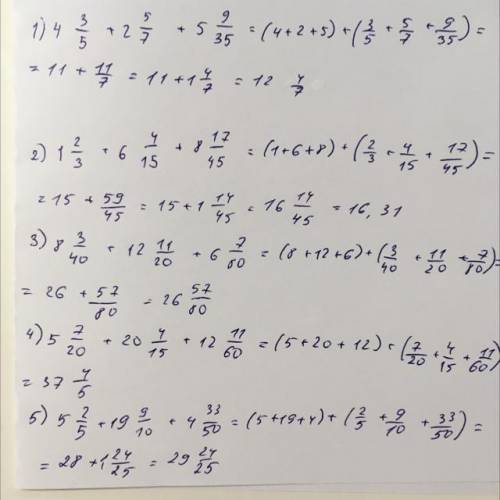 1) 4 3/5 + 2 5/7 + 5 9/35 = (4+2+5) + (3/5 + 5/7 + 9/35) =
= 11 + 11/7 = 11 + 1 4/7 = 12 4/7
2) 1 2/3 + 6 4/15 + 8 17/45 = (1+6+8) + (2/3 + 4/15 + 17/45) =
= 15 + 59/45 = 15 + 1 14/45 = 16 14/45 = 16,31
3) 8 3/40 + 12 11/20 + 6 7/80 = (8+12+6) + (3/40 + 11/20 + 7/80) =
= 26 + 57/80 = 26 57/80
4) 5 7/20 + 20 4/15 + 12 11/60 = (5+20+12) + (7/20 + 4/15 + 11/60)
= 37 4/5
5) 5 2/5 + 19 9/10 + 4 33/50 = (5+19+4) + (2/5 + 9/10 + 33/50) =
= 28 + 1 24/25 = 29 24/25